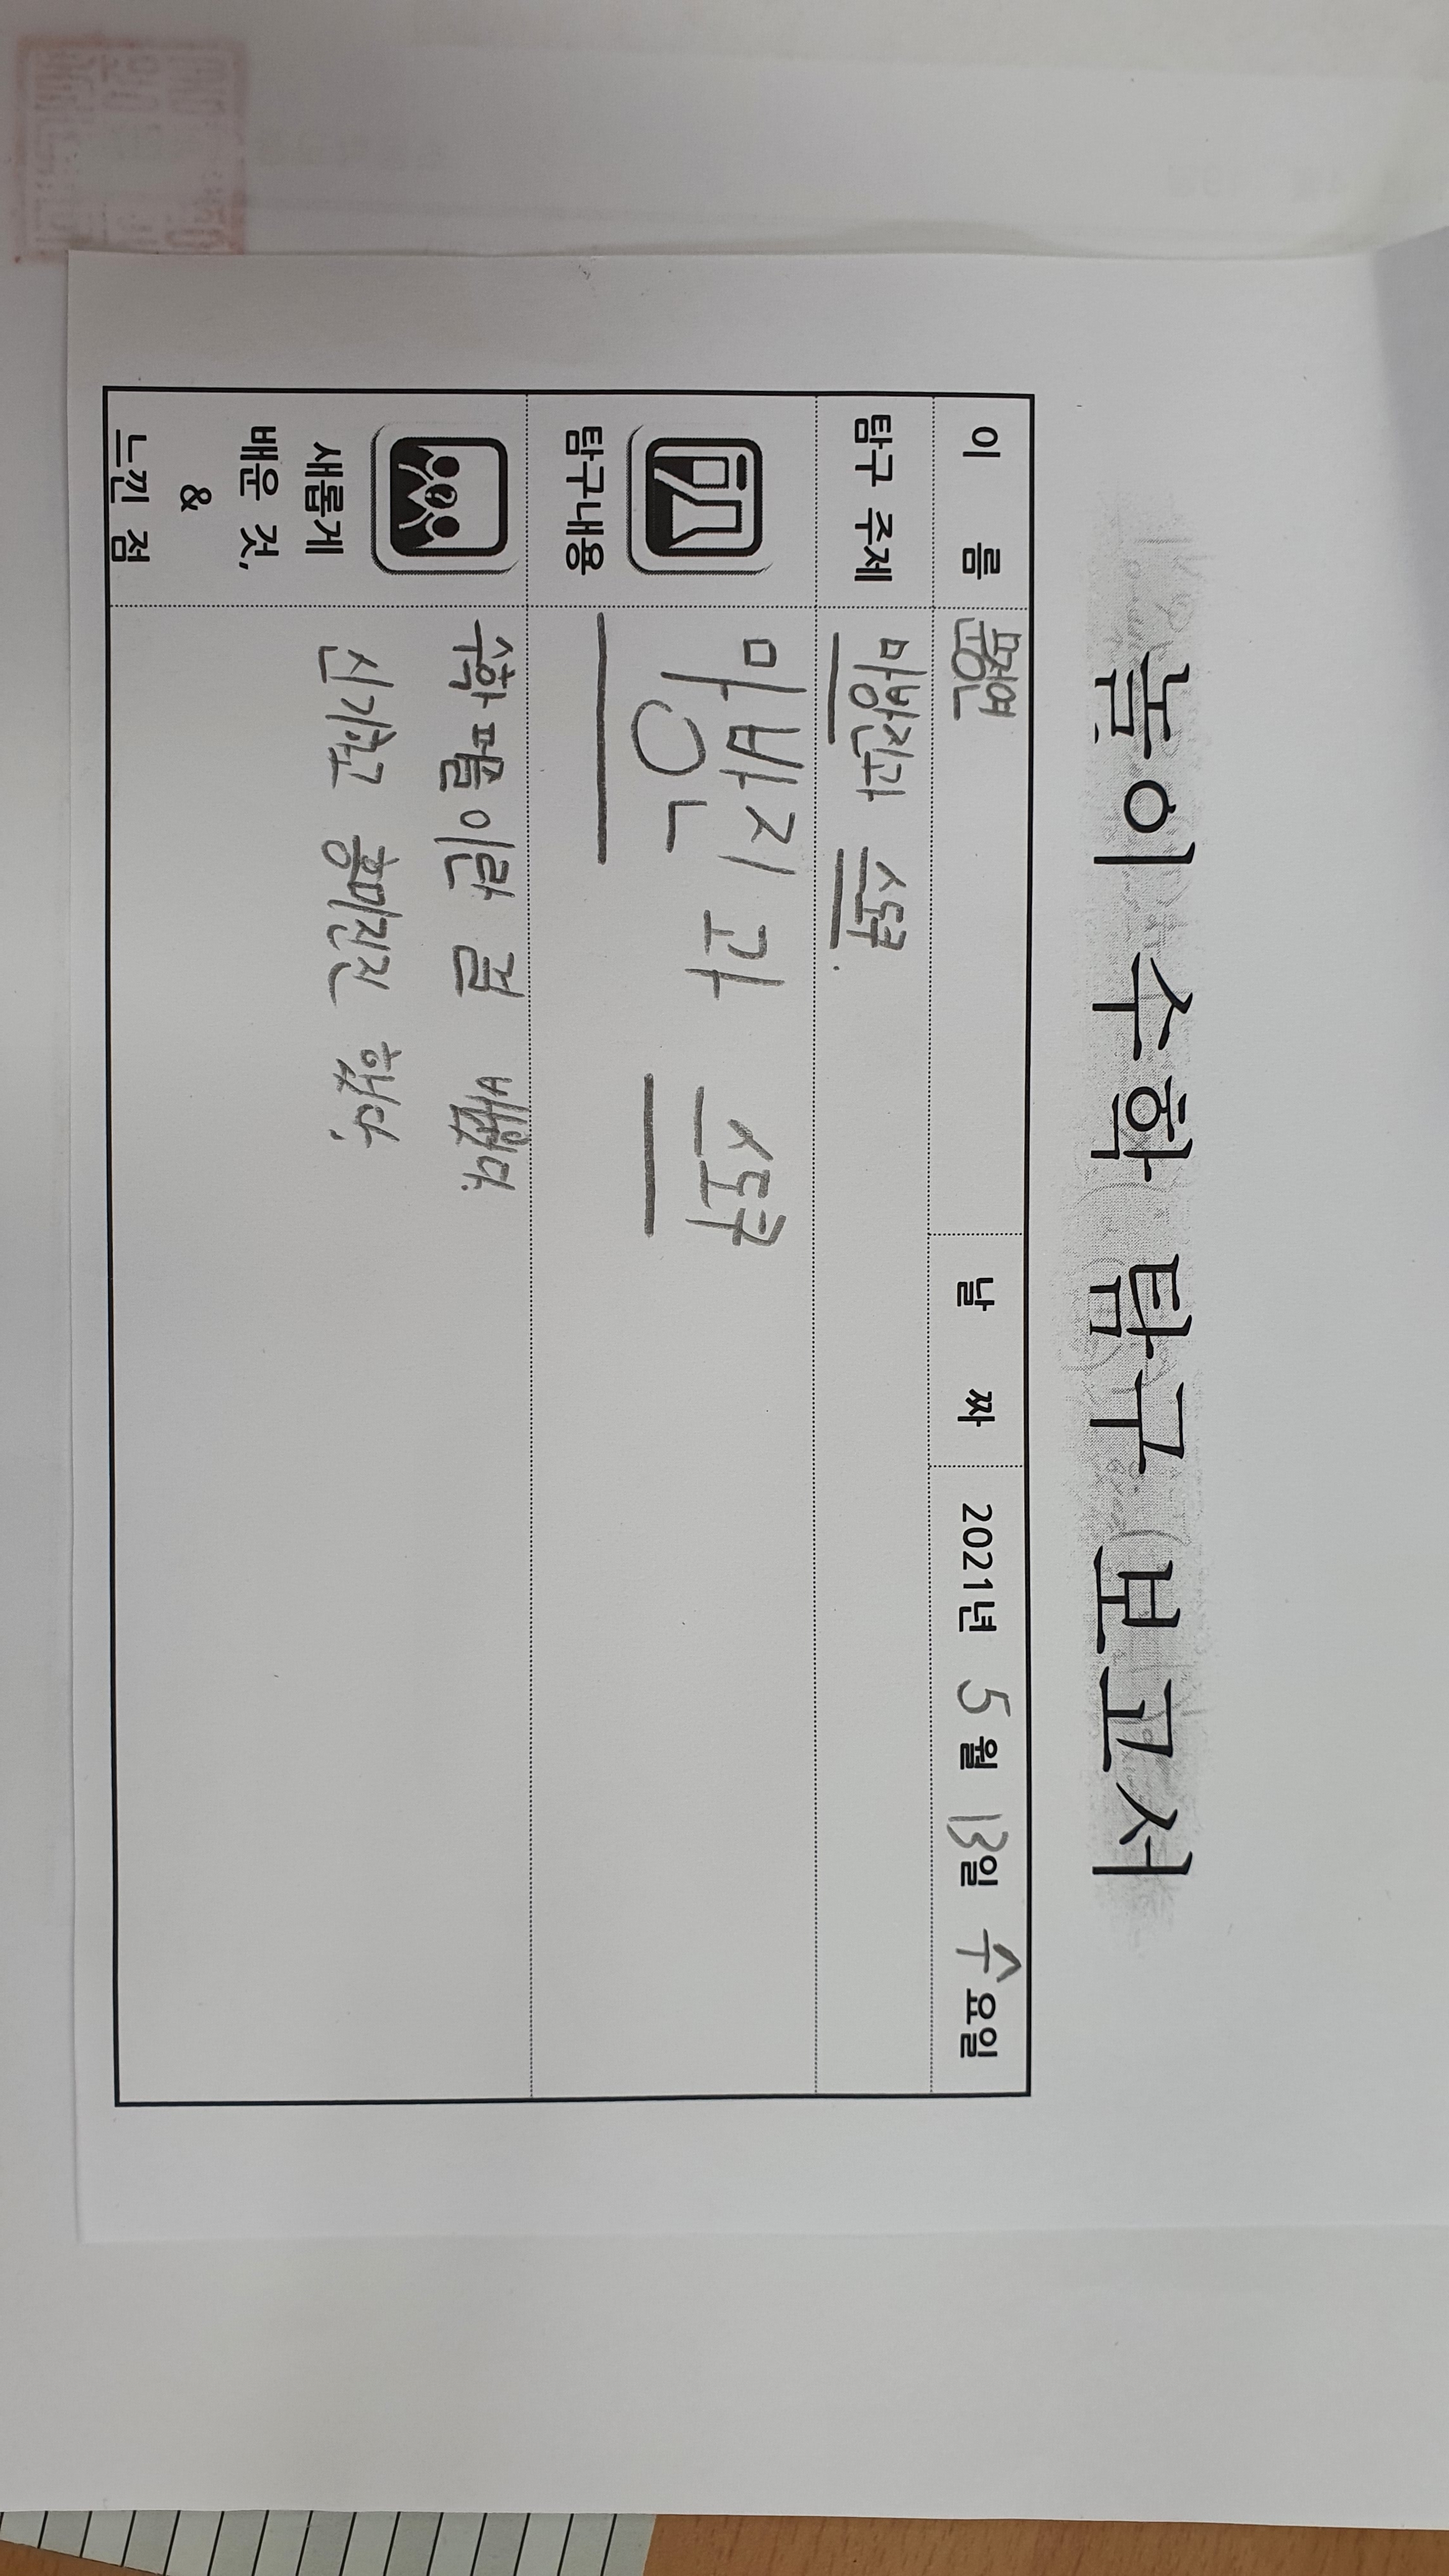 놀이 수학 탐구 보고서
이 름 날 짜 2021년 5월 13일 수요일
탐구 주제 마방진과 스도쿠.
탐구내용 마방진과 스도쿠
새롭게 배운 것, & 느낀 점
수학 퍼즐이란 걸 배웠다.
신기하고 흥미진진 했다.